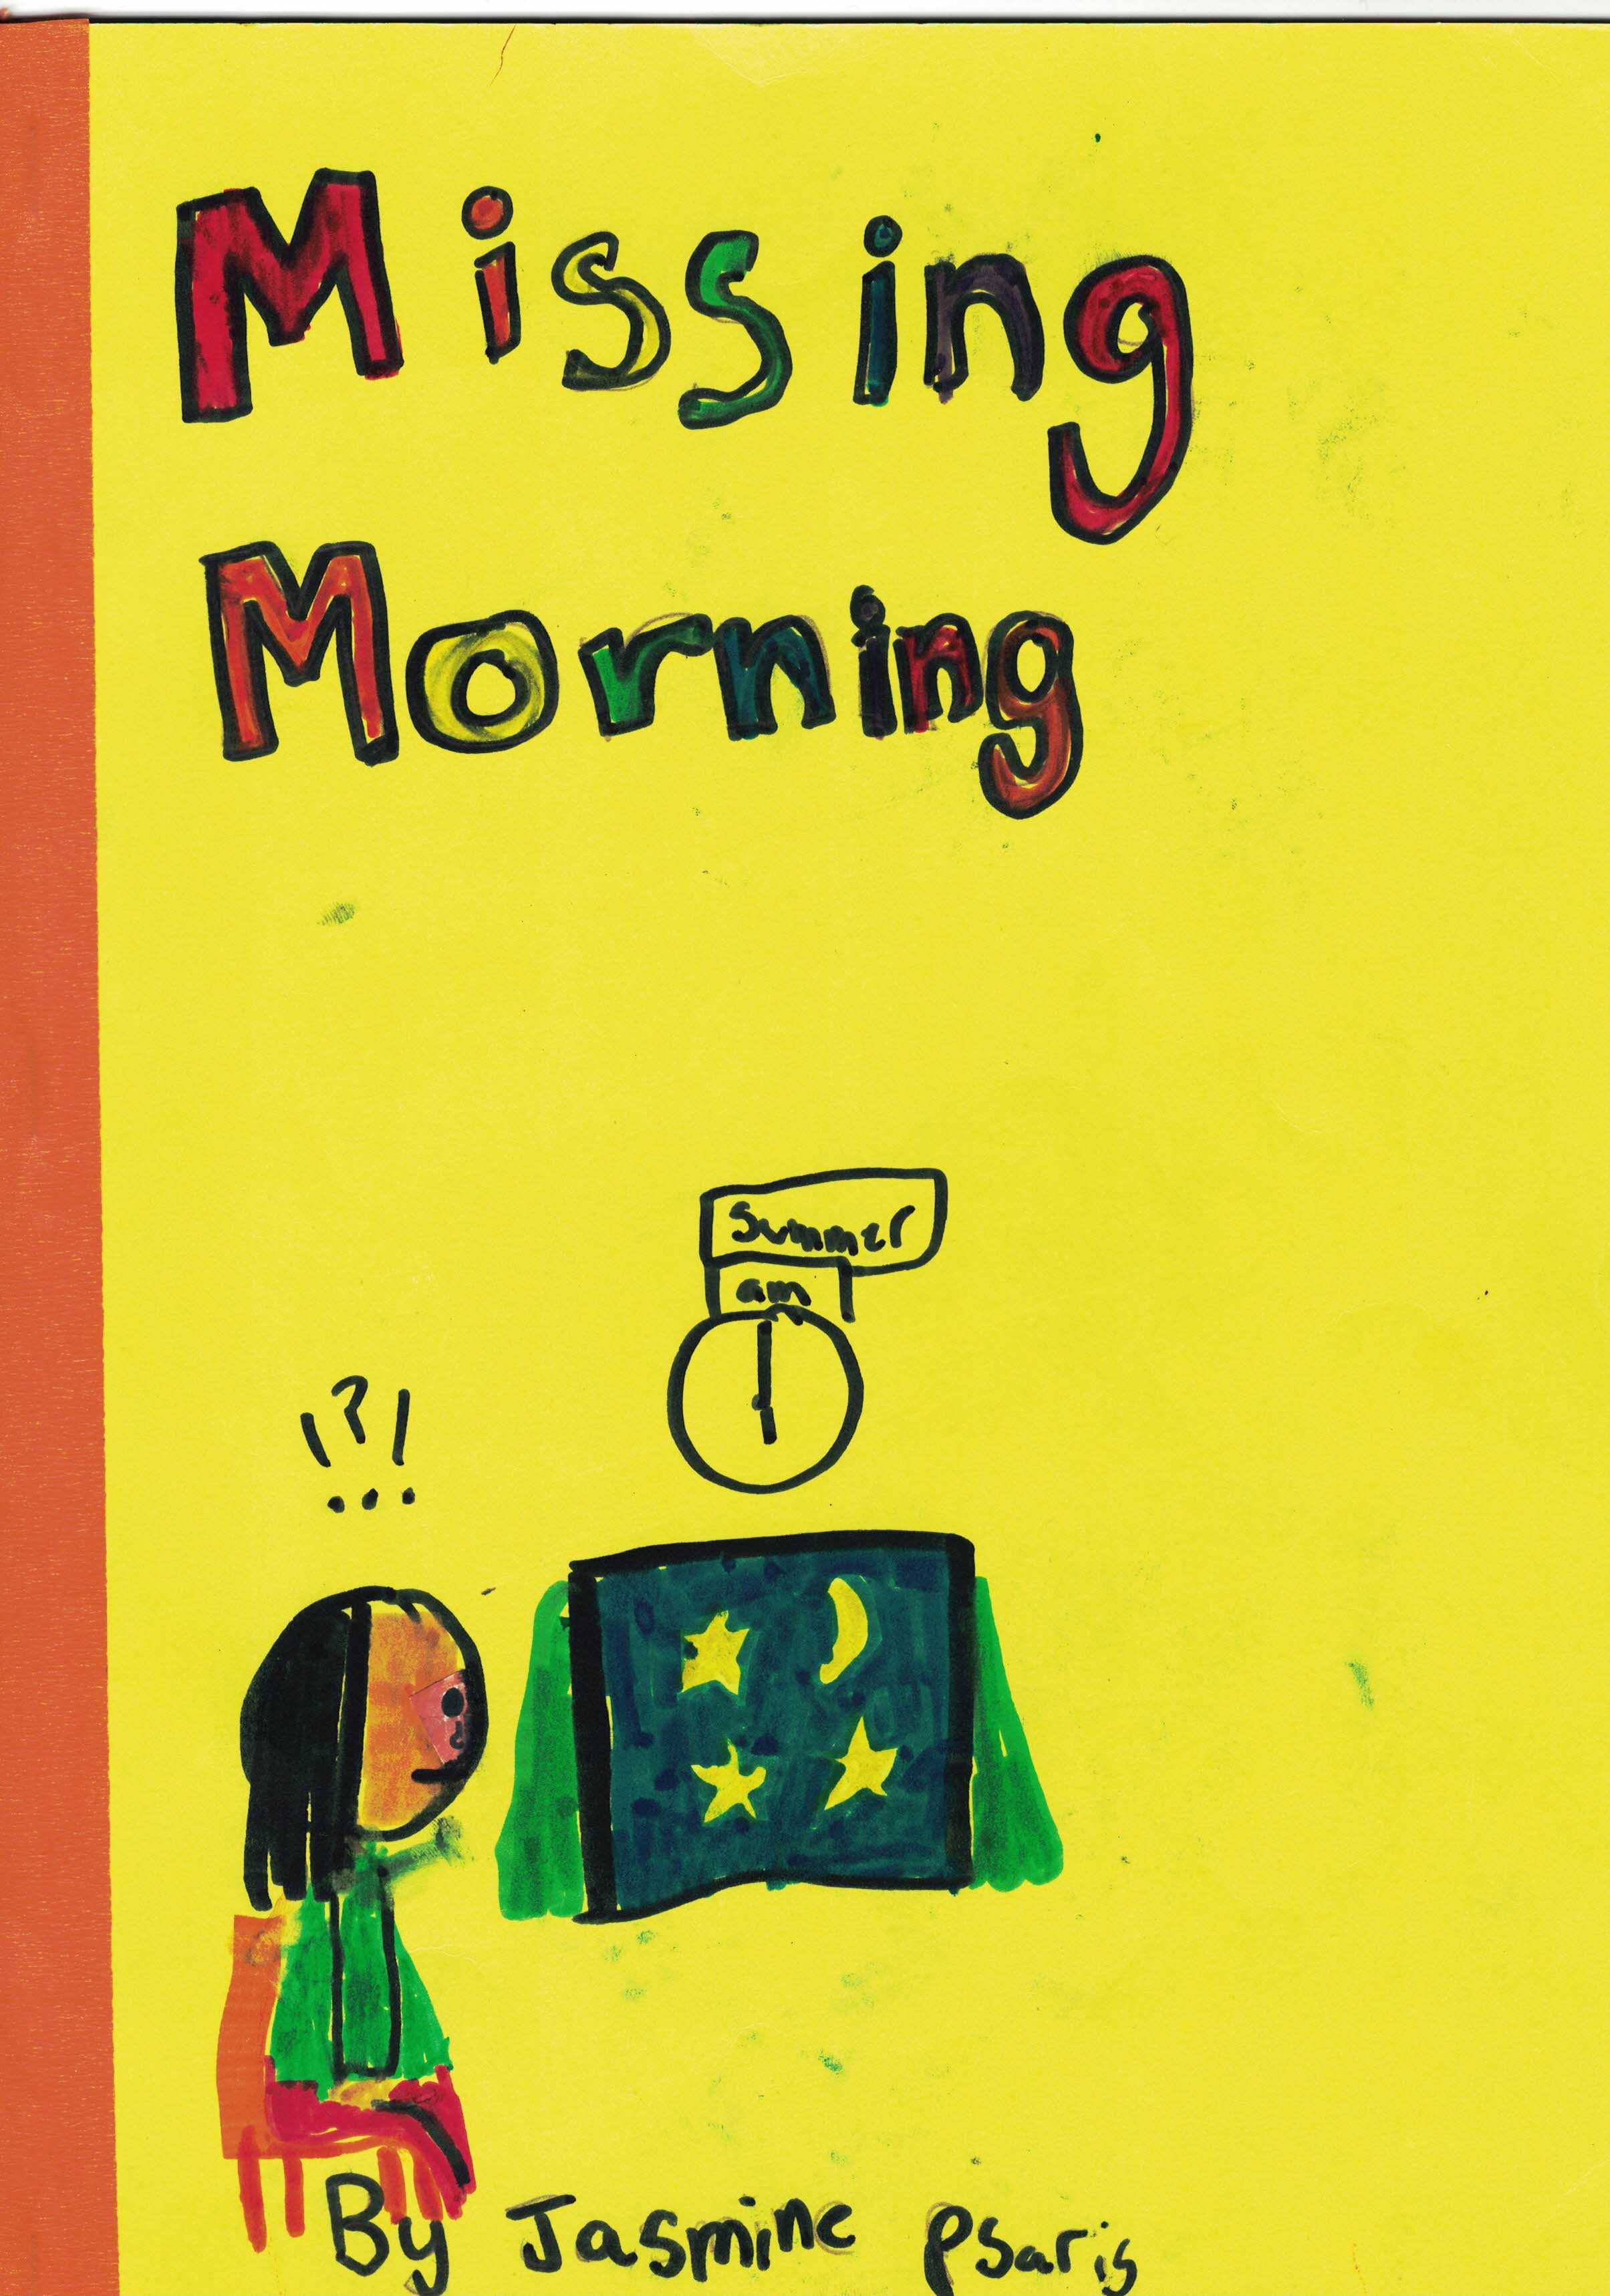 Missing
Morning
Summer
am
!?!
...
By Jasmine Psaris